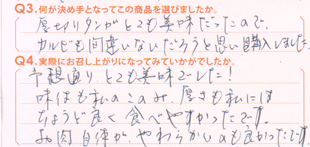 Q3.何が決め手となってこの商品を選びましたか。
厚切りタンがとても美味だったので、
カルビも間違いないだろうと思い購入しました。
Q4.実際にお召し上がりになってみていかがでしたか。
予想通りとても美味でした!
味はも私のこのみ、厚さも私には
ちょうど良く食べやすかったです。
お肉自体が、やわらかいのも良かったです。